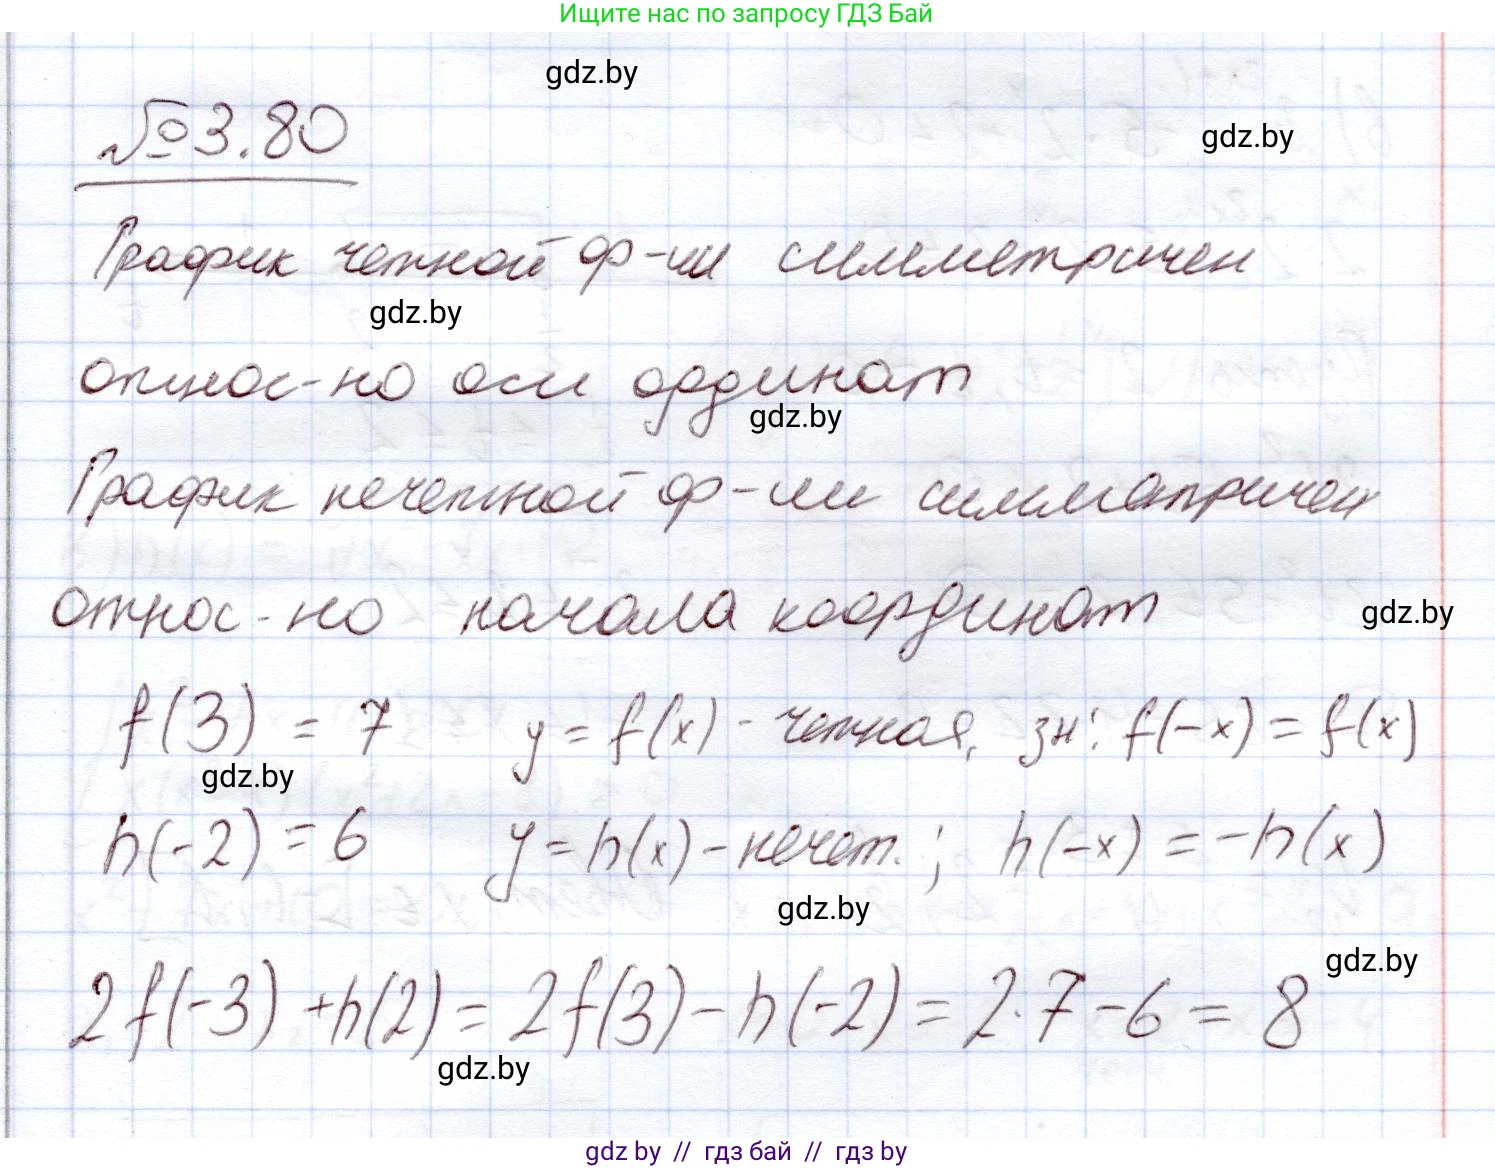 Ищите нас по запросу ГДЗ Бай
gdz.by
№3.80
gdz.by
График четной ф-ии симметричен
gdz.by
относ-но оси ординат
gdz.by
График нечетной ф-ии симметричен
относ-но начала координат
gdz.by
f(3) = 7 y = f(x) - четная, зн: f(-x) = f(x)
gdz.by
h(-2) = 6 y = h(x) - нечет.; h(-x) = -h(x)
gdz.by
gdz.by
2f(-3) + h(2) = 2f(3) - h(-2) = 2·7 - 6 = 8
gdz.by
gdz by // гдз бай // гдз by